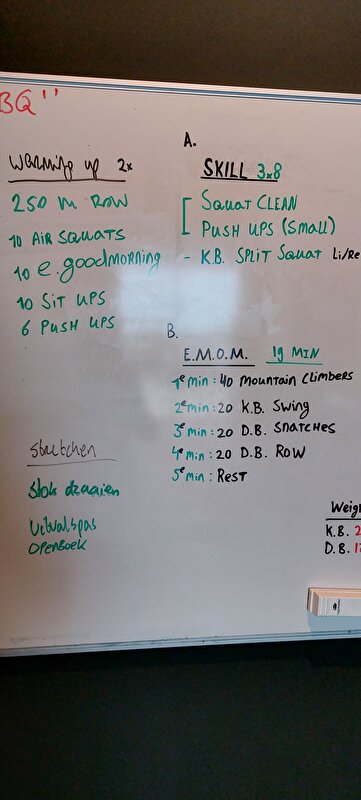 BQ"
Warming up 2x
250 m Row
10 Air Squats
10 e. goodmorning
10 Sit ups
6 Push ups
Stretchen
Stok draaien
Uitvalspas
Openboek
A.
SKILL 3x8
Squat CLEAN
PUSH UPS (Small)
- K.B. SPLIT Squat Li/Re
B.
E.M.O.M. 19 MIN
1e min: 40 Mountain Climbers
2e min: 20 K.B. Swing
3e min: 20 D.B. Snatches
4e min: 20 D.B. Row
5e min: Rest
Weig
K.B. 2
D.B. 1